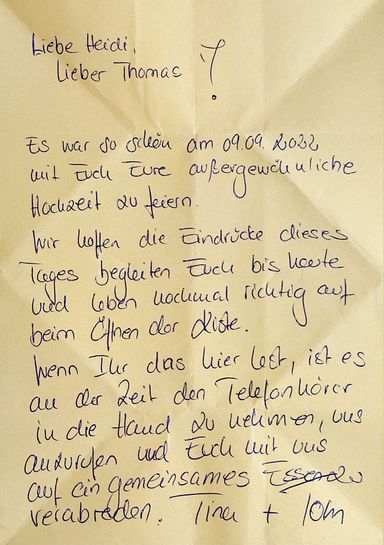 Liebe Heidi,
Lieber Thomas !
Es war so schön am 09.09.2022
mit Euch Eure außergewöhnliche
Hochzeit zu feiern.
Wir hoffen die Eindrücke dieses
Tages begleiten Euch bis heute
und leben nochmal richtig auf
beim Öffnen der Kiste.
Wenn Ihr das hier lest, ist es
an der Zeit den Telefonhörer
in die Hand zu nehmen, uns
anzurufen und Euch mit uns
auf ein gemeinsames Essen zu
verabreden. Tina + Tom